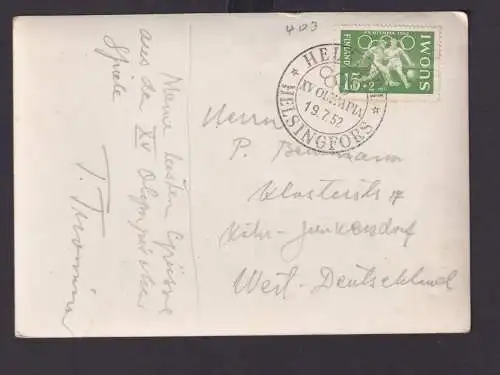 403
XV OLYMPIA 1952
FINLAND
SUOMI
15+2
XV OLYMPIA
19.7.52
HELSINGFORS
Herrn
P.
Klosterstr 17
Köln-Junkersdorf
West-Deutschland
Meine besten Grüsse
aus den XV Olympischen
Spiele